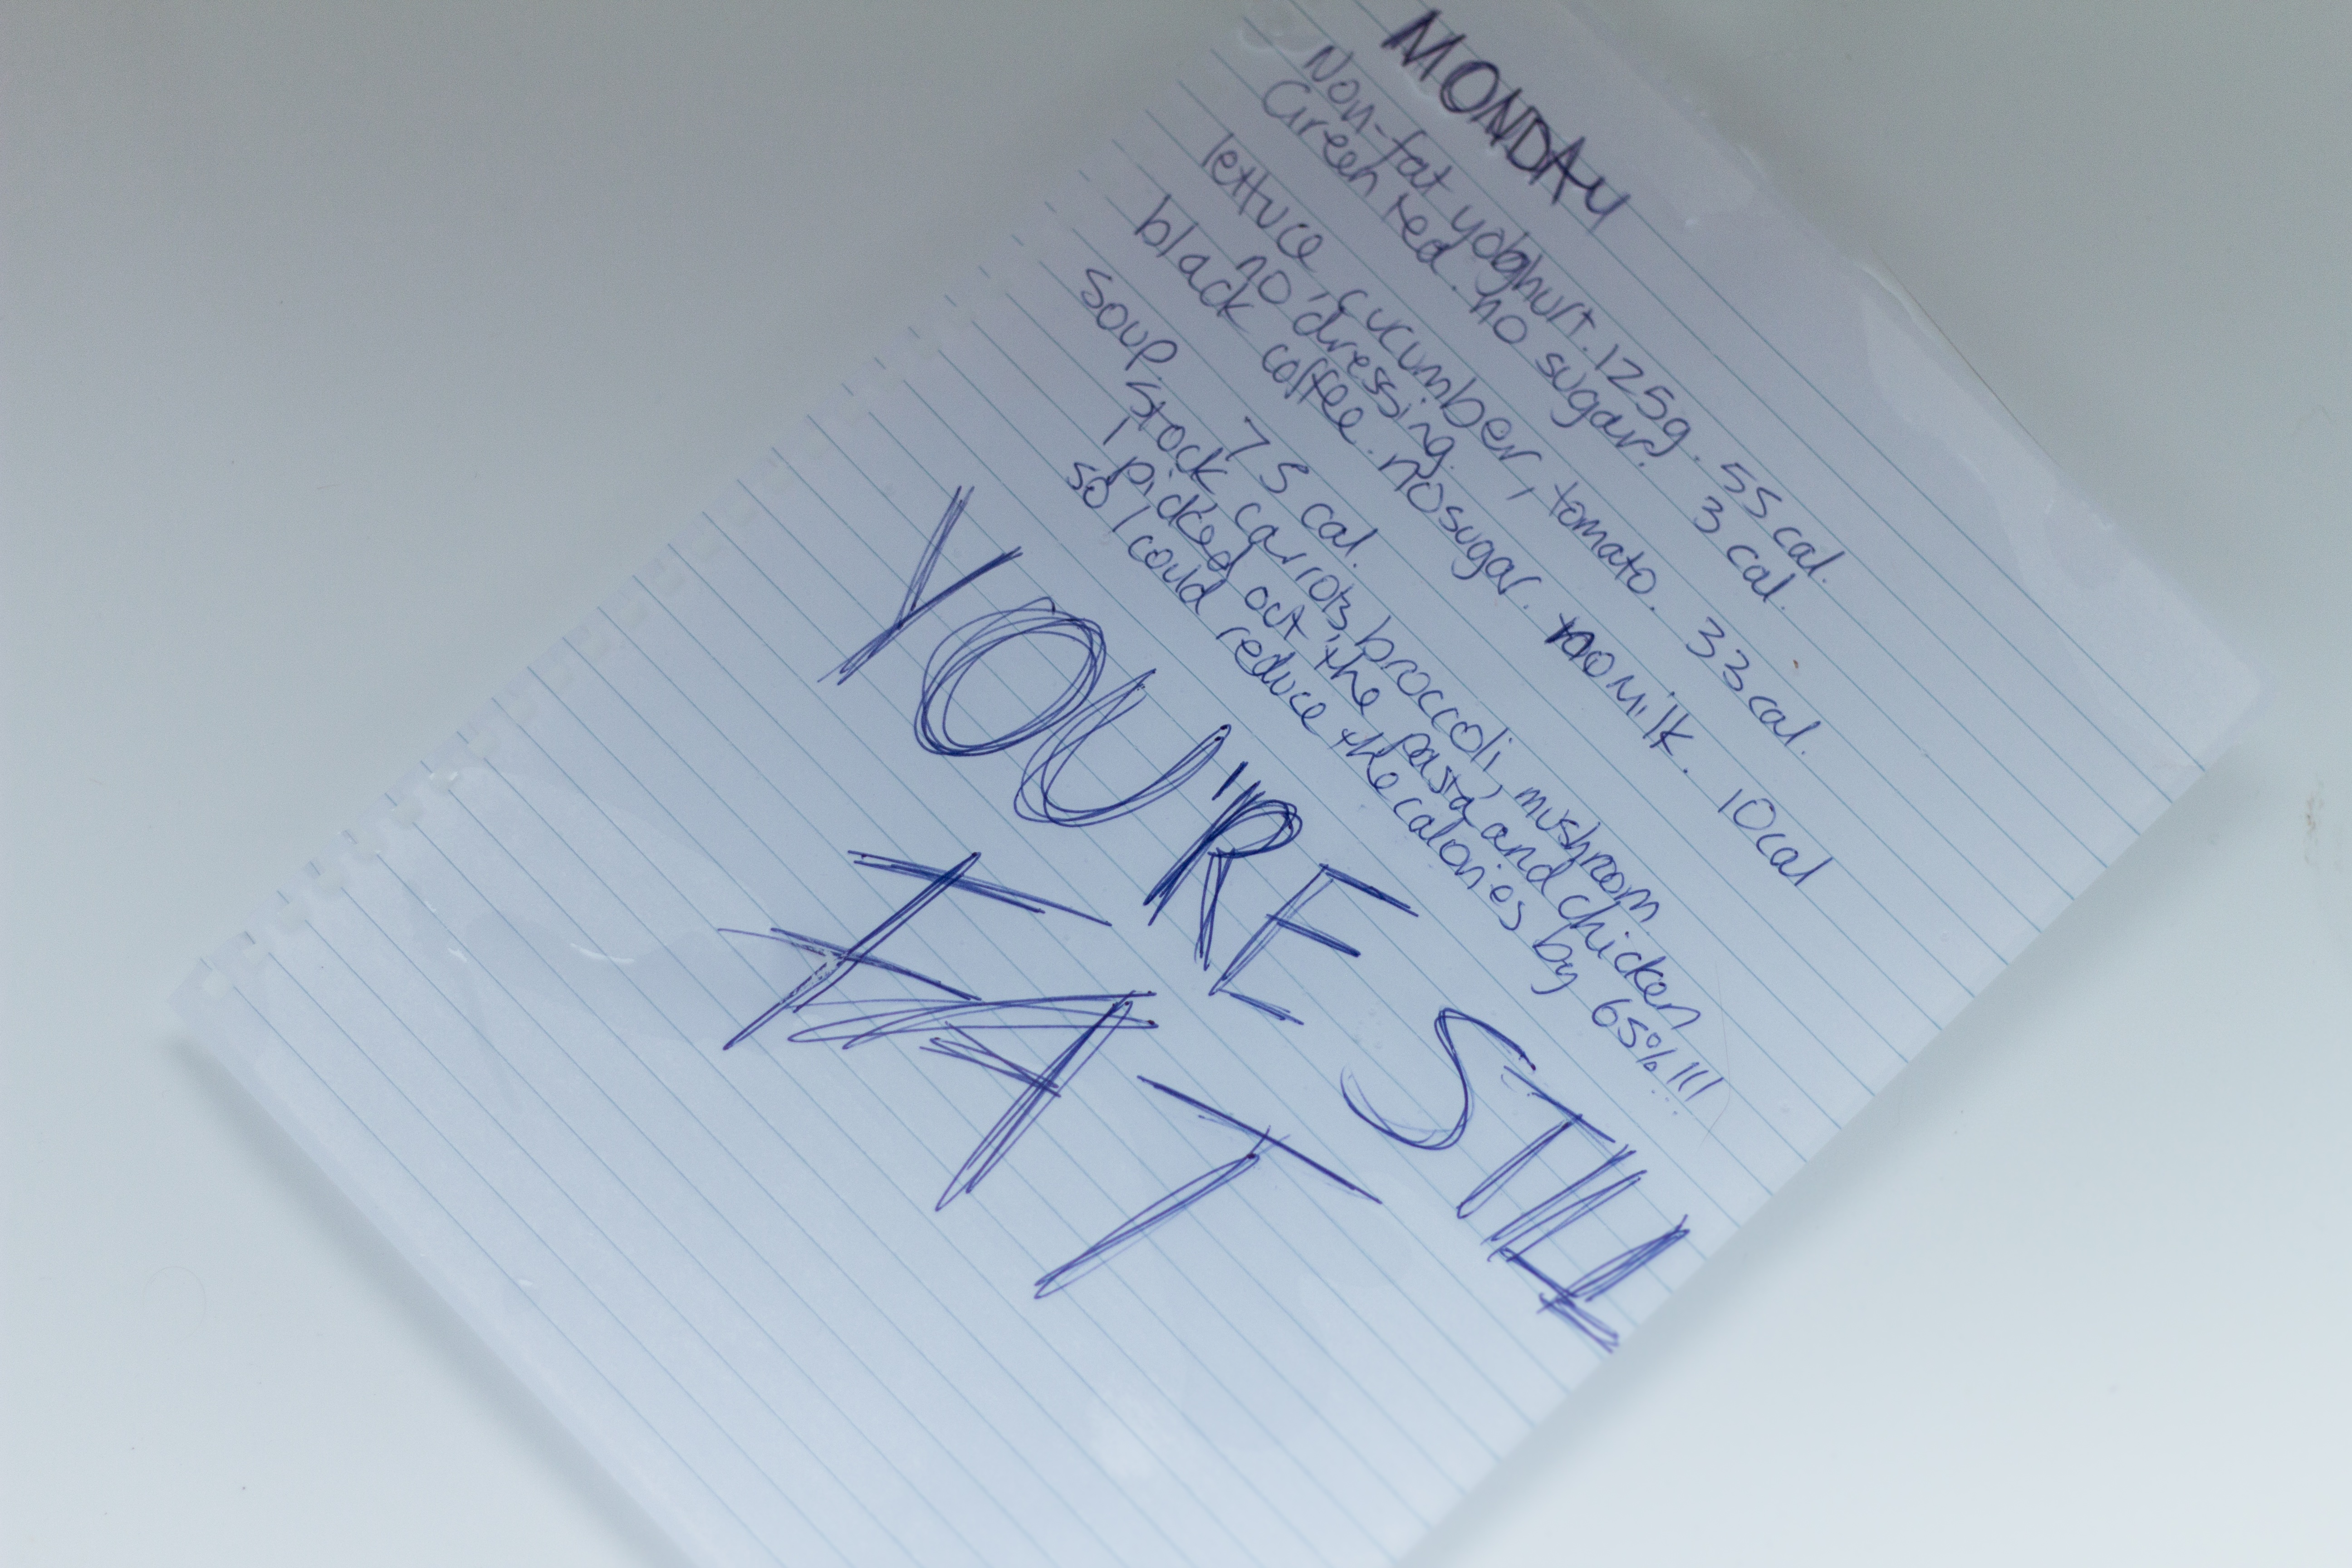 MONDAY
Non-fat yoghurt. 125g. 55 cal.
Green tea. no sugar. 3 cal.
lettuce, cucumber, tomato. 33 cal.
no dressing.
black coffee. no sugar. no milk. 10 cal
soup. 75 cal.
stock, carrots, broccoli, mushroom
I picked out the pasta and chicken
so I could reduce the calories by 65%!!!
YOU'RE STILL
FAT